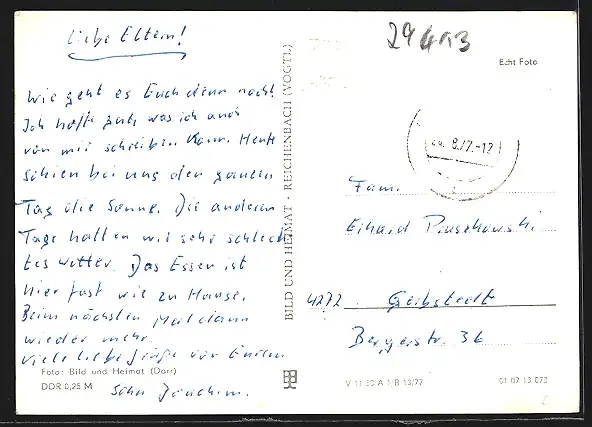 Liebe Eltern!
Wie geht es Euch denn noch?
Ich hoffe gut, was ich auch
von mir schreiben kann. Heute
schien bei uns den ganzen
Tag die Sonne. Die anderen
Tage hatten wir sehr schlech-
tes Wetter. Das Essen ist
hier fast wie zu Hause.
Beim nächsten Mal dann
wieder mehr.
Viele liebe Grüße von Euren
Sohn Joachim.
Foto: Bild und Heimat (Darr)
DDR 0,25 M
BILD UND HEIMAT · REICHENBACH (VOGTL)
Echt Foto
Fam.
Erhard
4272 Gerbstedt
Bergerstr. 36
V 11 50 A 1/B 13/77
01 07 13 073